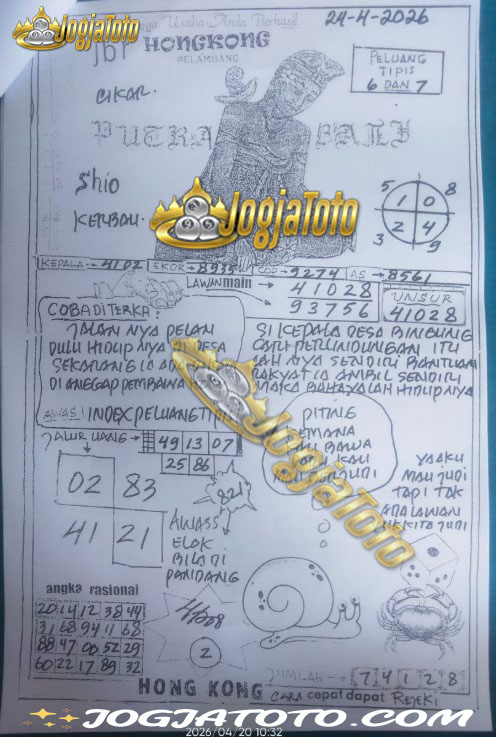 JogjaToto
Usaha Anda Berhasil
24-4-2026
HONGKONG
PELAMBANG
PELUANG
TIPIS
6 DAN 7
CIKAR.
PUTRA BALI
Shio
KERBAU.
5 8
1 0
2 4
3 9
JogjaToto
KEPALA→4102 EKOR→8935 9274 AS→8561
LAWAN main
41028
93756
UNSUR
41028
COBA DITERKA:
JALAN NYA PELAN
DULU HIDUP NYA DI DESA
SEKARANG IA
DI ANGGAP PEMBAWA
SI KEPALA DESA BINGUNG
CARI PERLINDUNGAN ITU
NYA SENDIRI BANTUAN
RAKYAT IA AMBIL SENDIRI
MAKA BAHAYALAH HIDUP NYA
AWAS! INDEX PELUANG
JALUR UANG→ 49 13 07
25 86
02 83
41 21
821
PITING
KAU
JogjaToto
YAAKU
MAU JUDI
TAPI TAK
ADA LAWAN
AWASS
ELOK
BILA DI
PANDANG
angka rasional
20 14 12 38 44
31 68 94 11 68
88 47 06 52 29
60 22 17 89 32
2
JUMLAH→ 7 4 1 2 8
HONG KONG CARA cepat dapat REJEKI
JOGJATOTO.COM
2026/04/20 10:32